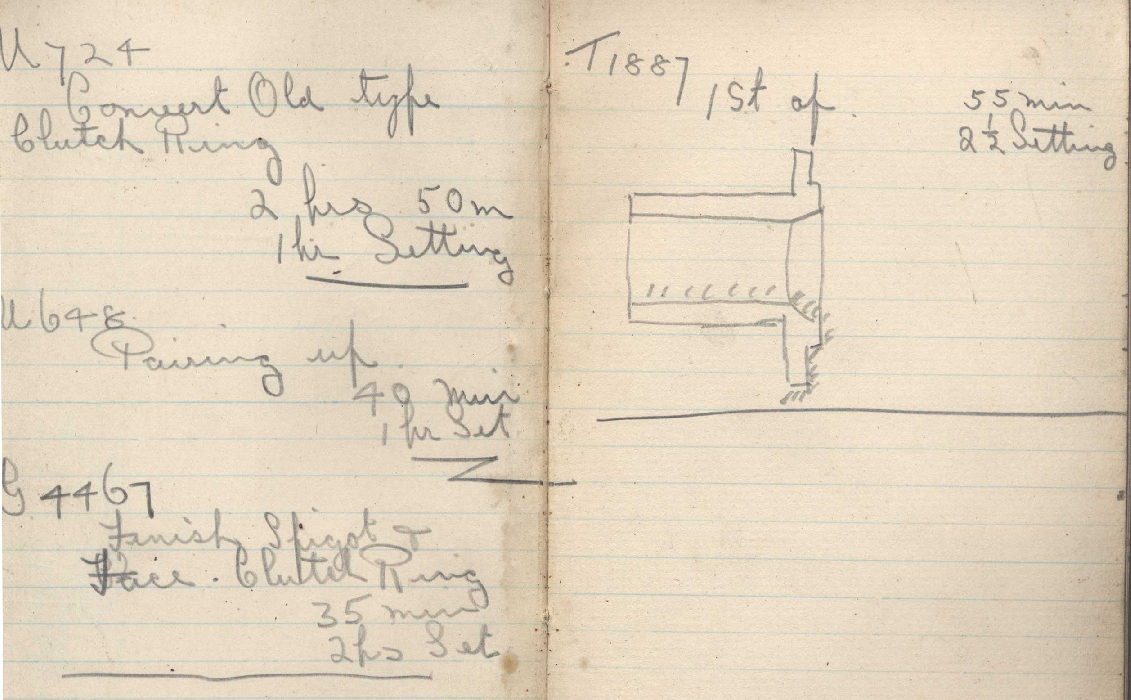 U 724
Convert Old type
Clutch Ring
2 hrs 50m
1hr Setting
U648
Pairing up
40 min
1 hr Set
G 4467
Finish Spigot &
Face. Clutch Ring
35 min
2hs Set
T1887
1St op.
55 min
2½ Setting